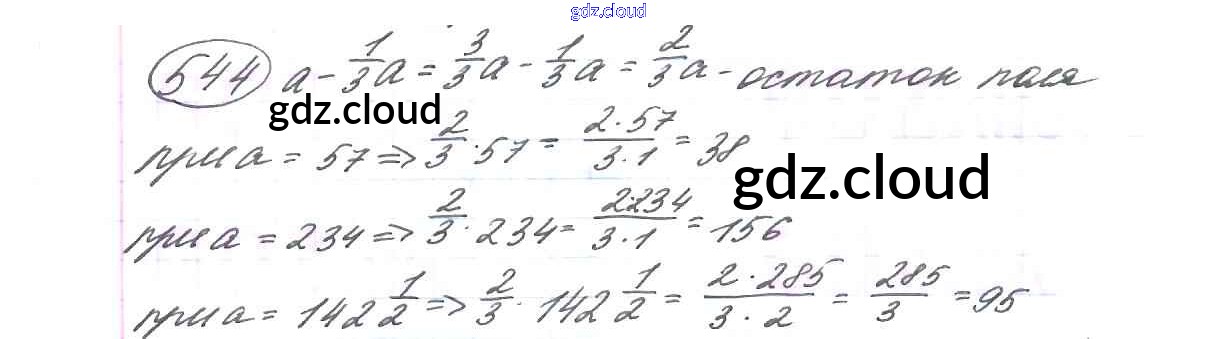 gdz.cloud
544 a - 1/3 a = 3/3 a - 1/3 a = 2/3 a - остаток поля
gdz.cloud
при a = 57 => 2/3 · 57 = 2·57/3·1 = 38
gdz.cloud
при a = 234 => 2/3 · 234 = 2·234/3·1 = 156
при a = 142 1/2 => 2/3 · 142 1/2 = 2·285/3·2 = 285/3 = 95